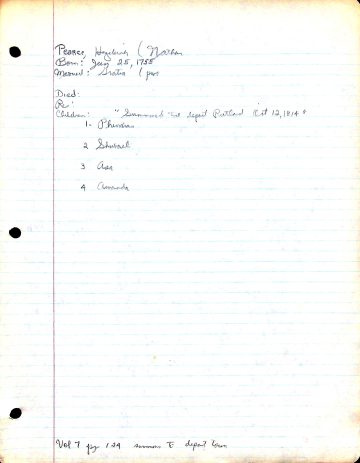 Pearce, Hezekiah ( Nathan
Born: Jany 25, 1755
Married: Grata (
Died:
Re:
Children: "Summoned to depart Rutland Oct 12, 1814"
1. Phineas
2 Shubael
3 Asa
4 Amanda
Vol 7 pg 129 summons to depart town